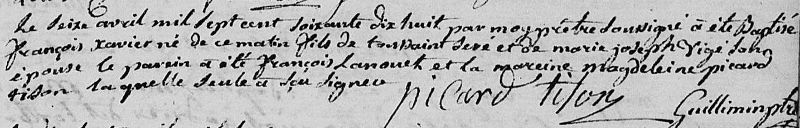 Le Seize avril mil Sept cent Soixante dix huit par moy prêtre Soussigné a été Baptisé
françois xavier né de ce matin fils de toussaint Seve et de marie joseph Vigé Son
épouse le parein a été françois Lanouet et la mareine magdeleine picard
tison laquelle Seule a Sçu signer
picard tison
Guillimin ptre